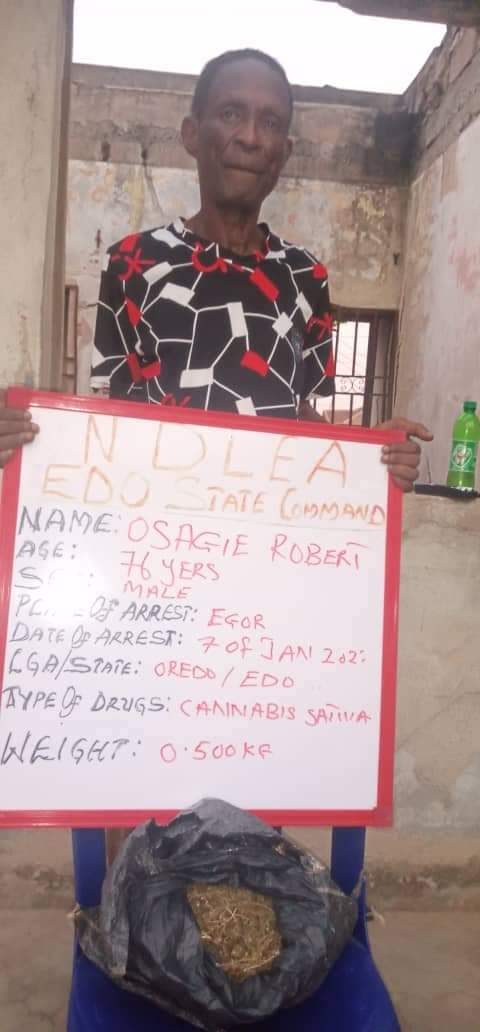 NDLEA
EDO STATE COMMAND
NAME: OSAGIE ROBERT
AGE: 76 YERS
SEX: MALE
PLACE OF ARREST: EGOR
DATE OF ARREST: 7 OF JAN
LGA/STATE: OREDO/EDO
TYPE OF DRUGS: CANNABIS SATIVA
WEIGHT: 0.500KG